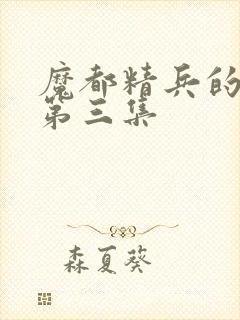 魔都精兵的
第三集
森夏葵